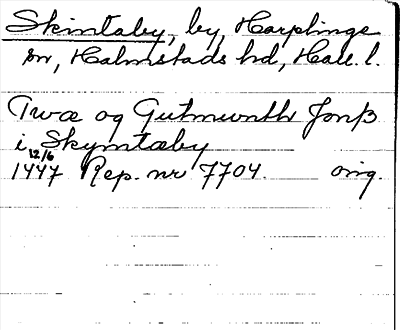 Skintaby, by, Harplinge
sn, Halmstads hd, Hall. l.
Twæ og Gutmunth Jonß
i Skymtæby
12/6
1447 Rep. nr 7704. orig.